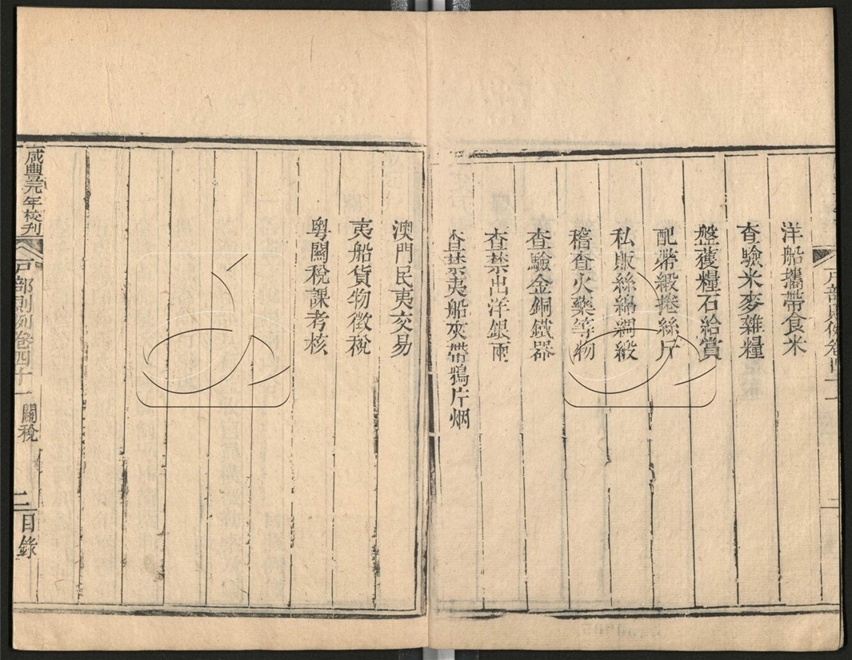 戶部則例卷四十一
洋船攜帶食米
查驗米麥雜糧
盤獲糧石給賞
配帶緞捲絲斤
私販絲綿綢緞
稽查火藥等物
查驗金銅鐵器
查禁出洋銀兩
查禁夷船夾帶鴉片烟
澳門民夷交易
夷船貨物徵稅
粵關稅課考核
咸豐元年校刊
戶部則例卷四十一 關稅
二 目錄